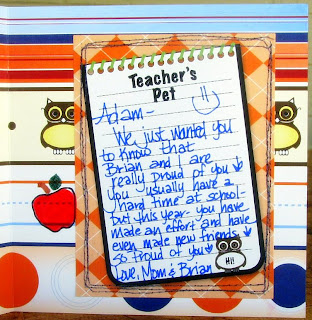 Teacher's
Pet
Adam-
We just wanted you
to know that
Brian and I are
really proud of you
you usually have a
hard time at school-
but this year- you have
made an effort and have
even made new friends
so proud of you
Love, Mom & Brian
Hi!